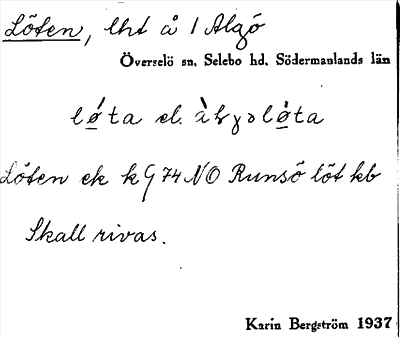 Löten, lht å 1 Algö
Överselö sn. Selebo hd. Södermanlands län
lø̀ta el. àlgəlø̀ta
Löten ek kG 74 NO Runsö löt kb
Skall rivas.
Karin Bergström 1937